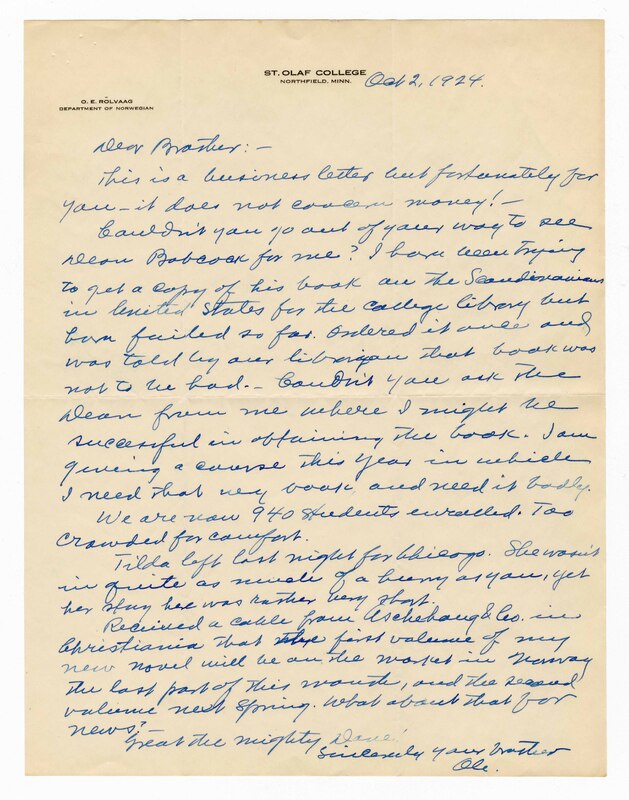 ST. OLAF COLLEGE
NORTHFIELD, MINN.
Oct 2, 1924.
O. E. RÖLVAAG
DEPARTMENT OF NORWEGIAN
Dear Brother:—
This is a business letter but fortunately for
you — it does not concern money! —
Couldn't you go out of your way to see
Dean Babcock for me? I have been trying
to get a copy of his book on the Scandinavians
in United States for the College library but
have failed so far. Ordered it once and
was told by our librarian that book was
not to be had. — Couldn't you ask the
Dean from me where I might be
successful in obtaining the book. I am
giving a course this year in which
I need that very book, and need it badly.
We are now 940 students enrolled. Too
crowded for comfort.
Tilda left last night for Chicago. She wasn't
in quite as much of a hurry as you, yet
her stay here was rather very short.
Received a cable from Aschehaug & Co. in
Christiania that the first volume of my
new novel will be on the market in Norway
the last part of this month, and the second
volume next Spring. What about that for
news?
Great the mighty Dane!
Sincerely your brother
Ole.